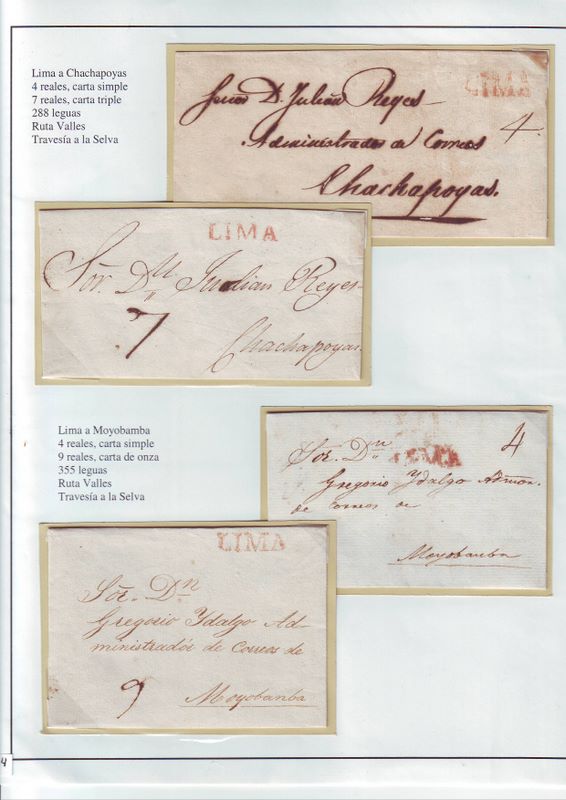 Lima a Chachapoyas
4 reales, carta simple
7 reales, carta triple
288 leguas
Ruta Valles
Travesía a la Selva
LIMA
Señor D. Julián Reyes
4.
Administrador de Correos
Chachapoyas.
LIMA
Sõr. Dn Julian Reyes
7
Chachapoyas.
Lima a Moyobamba
4 reales, carta simple
9 reales, carta de onza
355 leguas
Ruta Valles
Travesía a la Selva
4
Sõr. Dn
LIMA
Gregorio Ydalgo Admon.
de Correos de
Moyobanba
LIMA
Sõr. Dn
Gregorio Ydalgo Ad-
ministradór de Correos de
9
Moyobanba
4